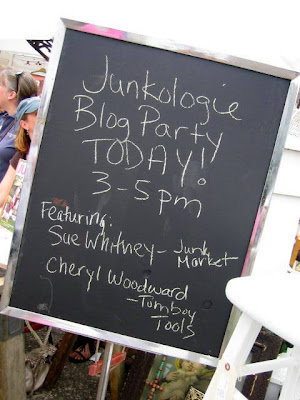 Junkologie
Blog Party
TODAY!
3-5pm
Featuring:
Sue Whitney - Junk
Market
Cheryl Woodward
- Tomboy
Tools